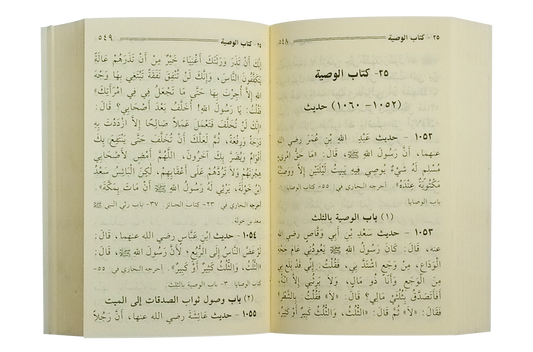 ٢٥ - كتاب الوصية
٥٤٨
٢٥- كتاب الوصية
(١٠٥٢- ١٠٦٠) حديث
١٠٥٢ - حديث عَبْدِ اللهِ بْنِ عُمَرَ رضي الله
عنهما، أَنَّ رَسُولَ اللهِ ﷺ، قَالَ: «مَا حَقُّ امْرِئٍ
مُسْلِمٍ لَهُ شَيْءٌ يُوصِي فِيهِ يَبِيتُ لَيْلَتَيْنِ إِلَّا وَوَصِيَّتُهُ
مَكْتُوبَةٌ عِنْدَهُ» أخرجه البخاري في ٥٥- كتاب الوصايا
باب الوصايا
(١) باب الوصية بالثلث
١٠٥٣ - حديث سَعْدِ بْنِ أَبِي وَقَّاصٍ رضي الله
عنه، قَالَ: كَانَ رَسُولُ اللهِ ﷺ يَعُودُنِي عَامَ حَجَّةِ
الْوَدَاعِ، مِنْ وَجَعٍ اشْتَدَّ بِي، فَقُلْتُ: إِنِّي قَدْ بَلَغَ بِي
مِنَ الْوَجَعِ وَأَنَا ذُو مَالٍ، وَلَا يَرِثُنِي إِلَّا ابْنَةٌ
أَفَأَتَصَدَّقُ بِثُلُثَيْ مَالِي؟ قَالَ: «لَا» فَقُلْتُ بِالشَّطْرِ؟
فَقَالَ: «لَا» ثُمَّ قَالَ: «الثُّلُثُ، وَالثُّلُثُ كَبِيرٌ أَوْ كَثِيرٌ،
كتاب الوصية
٥٤٩
إِنَّكَ أَنْ تَذَرَ وَرَثَتَكَ أَغْنِيَاءَ خَيْرٌ مِنْ أَنْ تَذَرَهُمْ عَالَةً
يَتَكَفَّفُونَ النَّاسَ، وَإِنَّكَ لَنْ تُنْفِقَ نَفَقَةً تَبْتَغِي بِهَا وَجْهَ
اللهِ إِلَّا أُجِرْتَ بِهَا حَتَّى مَا تَجْعَلُ فِي فِي امْرَأَتِكَ»
فَقُلْتُ: يَا رَسُولَ اللهِ! أُخَلَّفُ بَعْدَ أَصْحَابِي؟ قَالَ:
«إِنَّكَ لَنْ تُخَلَّفَ فَتَعْمَلَ عَمَلًا صَالِحًا إِلَّا ازْدَدْتَ بِهِ
دَرَجَةً وَرِفْعَةً، ثُمَّ لَعَلَّكَ أَنْ تُخَلَّفَ حَتَّى يَنْتَفِعَ بِكَ
أَقْوَامٌ وَيُضَرَّ بِكَ آخَرُونَ، اللَّهُمَّ أَمْضِ لِأَصْحَابِي
هِجْرَتَهُمْ وَلَا تَرُدَّهُمْ عَلَى أَعْقَابِهِمْ، لَكِنِ الْبَائِسُ سَعْدُ
بْنُ خَوْلَةَ، يَرْثِي لَهُ رَسُولُ اللهِ ﷺ أَنْ مَاتَ بِمَكَّةَ».
أخرجه البخاري في ٢٣- كتاب الجنائز ٣٧- باب رثى النبي ﷺ
سعد بن خولة
١٠٥٤ - حديث ابْنِ عَبَّاسٍ رضي الله عنهما، قَالَ:
لَوْ غَضَّ النَّاسُ إِلَى الرُّبْعِ؛ لِأَنَّ رَسُولَ اللهِ ﷺ، قَالَ:
«الثُّلُثُ، وَالثُّلُثُ كَبِيرٌ أَوْ كَثِيرٌ». أخرجه البخاري في ٥٥-
كتاب الوصايا ٣- باب الوصية بالثلث
(٢) باب وصول ثواب الصدقات إلى الميت
١٠٥٥ - حديث عَائِشَةَ رضي الله عنها، أَنَّ رَجُلًا